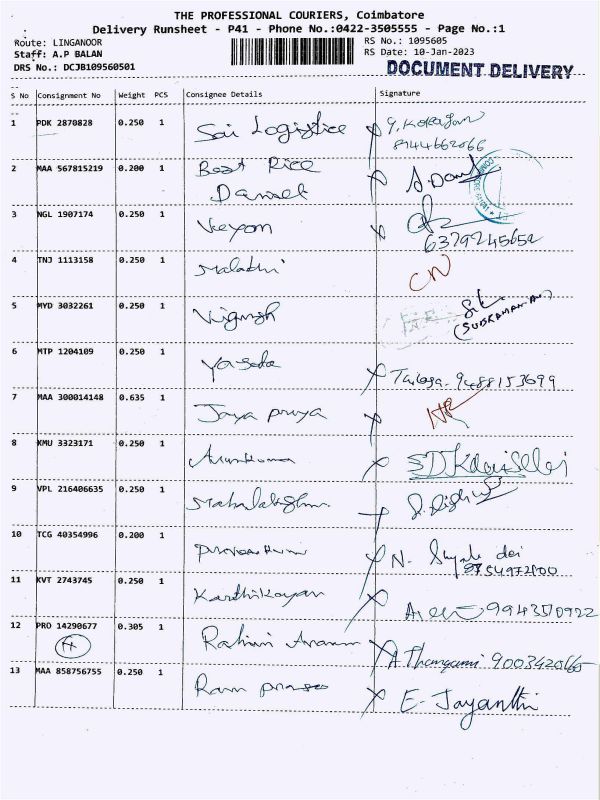 THE PROFESSIONAL COURIERS, Coimbatore
Delivery Runsheet - P41 - Phone No.:0422-3505555 - Page No.:1
Route: LINGANOOR
Staff: A.P BALAN
DRS No.: DCJB109560501
RS No.: 1095605
RS Date: 10-Jan-2023
DOCUMENT DELIVERY
S No Consignment No Weight PCS Consignee Details Signature
1 PDK 2870828 0.250 1 Sai Logistice
8144662066
2 MAA 567815219 0.200 1 Best Rice
Daniel
3 NGL 1907174 0.250 1 Keyom
6379245652
4 TNJ 1113158 0.250 1 Maladhi CN
5 MYD 3032261 0.250 1 Vignesh
(SUBRAMANIAN)
6 MTP 1204109 0.250 1 Yasoda 9488153699
7 MAA 300014148 0.635 1 Jaya priya NR
8 KMU 3323171 0.250 1 Arunkumar
9 VPL 216406635 0.250 1 Mahalakshmi
10 TCG 40354996 0.200 1 N.
11 KVT 2743745 0.250 1 Karthikayan 9943570922
12 PRO 14290677 0.305 1 Rahini A Thangami 9003420665
13 MAA 858756755 0.250 1 Ram prasao E. Jayanthi